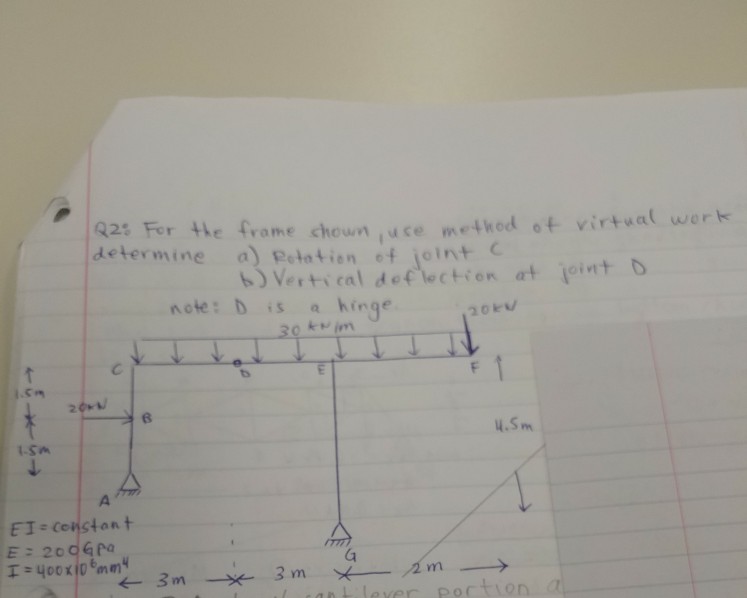 Q2: For the frame shown, use method of virtual work
determine a) Rotation of joint C
b) Vertical deflection at joint D
note: D is a hinge.
20kN
30 kN/m
C
D
E
F
1.5m
20kN
B
4.5m
1.5m
A
EI = constant
E = 200 GPa
G
I = 400x10⁶mm⁴
3m
3m
2m
cantilever portion a